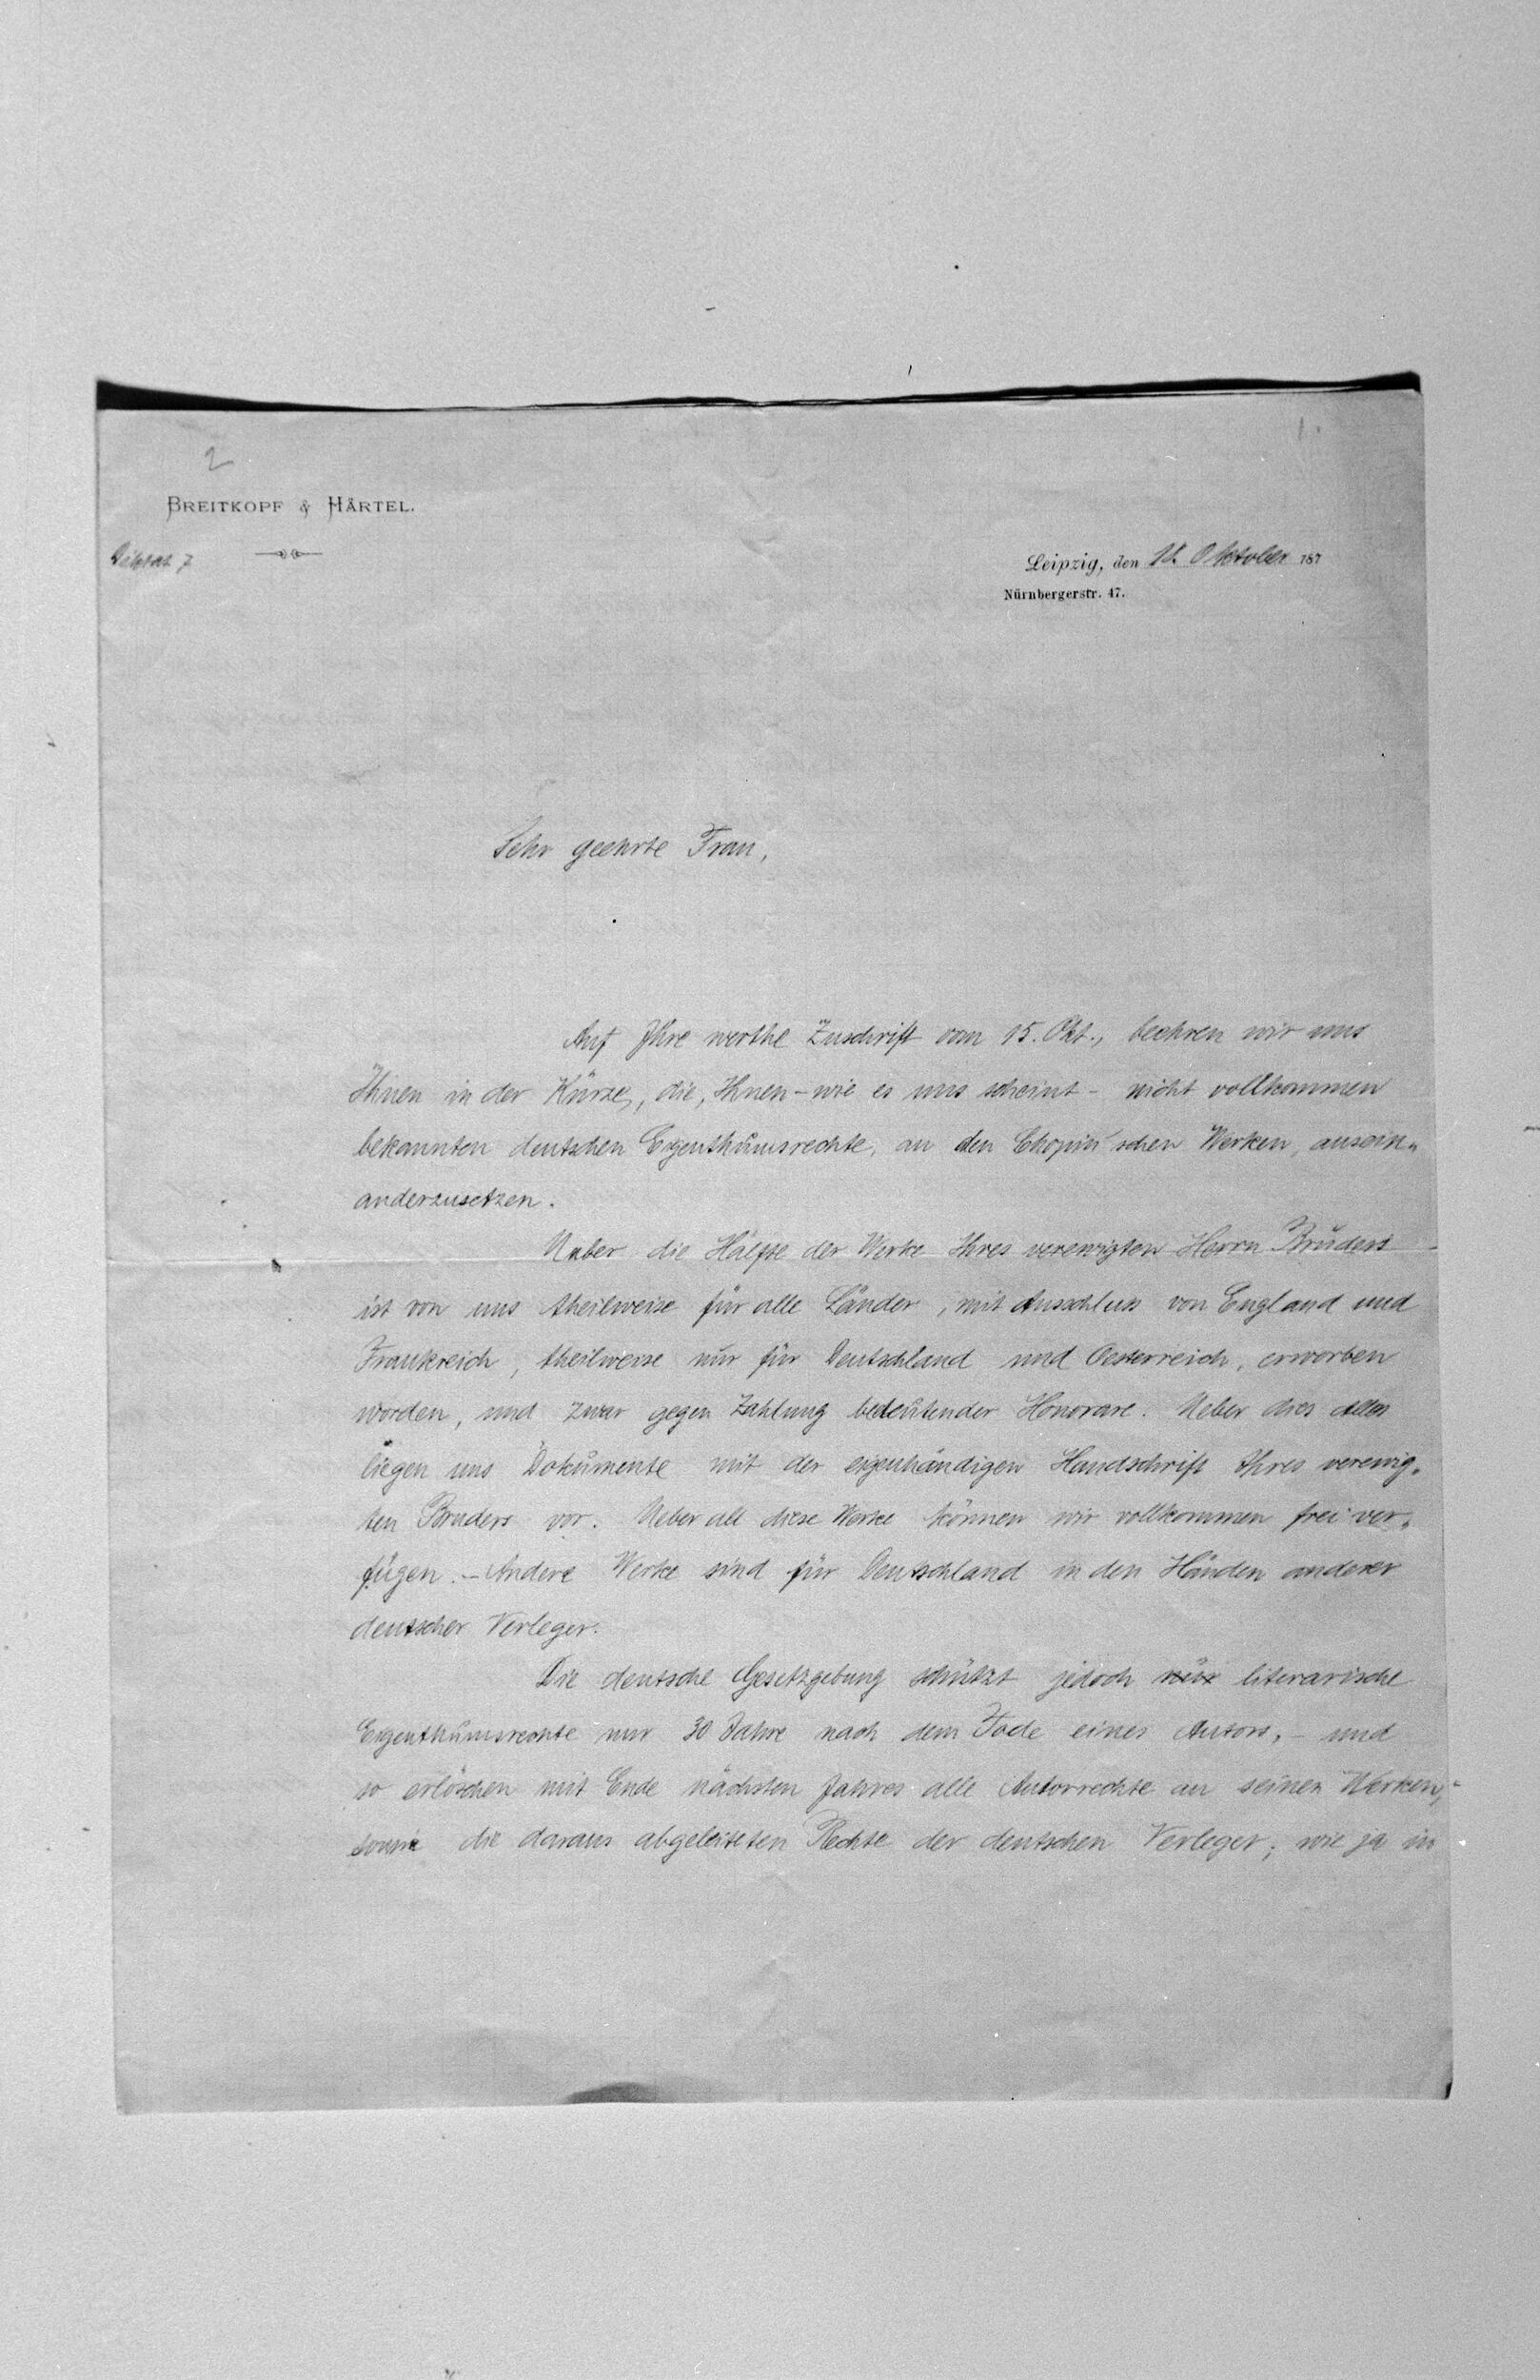 2
1.
BREITKOPF & HÄRTEL.
Leipzig, den 18. Oktober 187
Nürnbergerstr. 47.
Sehr geehrte Frau,
Auf Ihre werthe Zuschrift vom 15. Okt., beehren wir uns
Ihnen in der Kürze, die, Ihnen - wie es uns scheint - nicht vollkommen
bekannten deutschen Eigenthumsrechte, an den Chopin'schen Werken, ausein-
anderzusetzen.
Ueber die Hälfte der Werke Ihres verewigten Herrn Bruders
ist von uns theilweise für alle Länder, mit Ausschluss von England und
Frankreich, theilweise nur für Deutschland und Oesterreich, erworben
worden, und zwar gegen Zahlung bedeutender Honorare. Ueber dies alles
liegen uns Dokumente mit der eigenhändigen Handschrift Ihres verewig-
ten Bruders vor. Ueber all diese Werke können wir vollkommen frei ver-
fügen. - Andere Werke sind für Deutschland in den Händen anderer
deutscher Verleger.
Die deutsche Gesetzgebung schützt jedoch nur literarische
Eigenthumsrechte nur 30 Jahre nach dem Tode eines Autors, - und
so erlöschen mit Ende nächsten Jahres alle Autorrechte an seinen Werken,
sowie die daraus abgeleiteten Rechte der deutschen Verleger; wie ja in